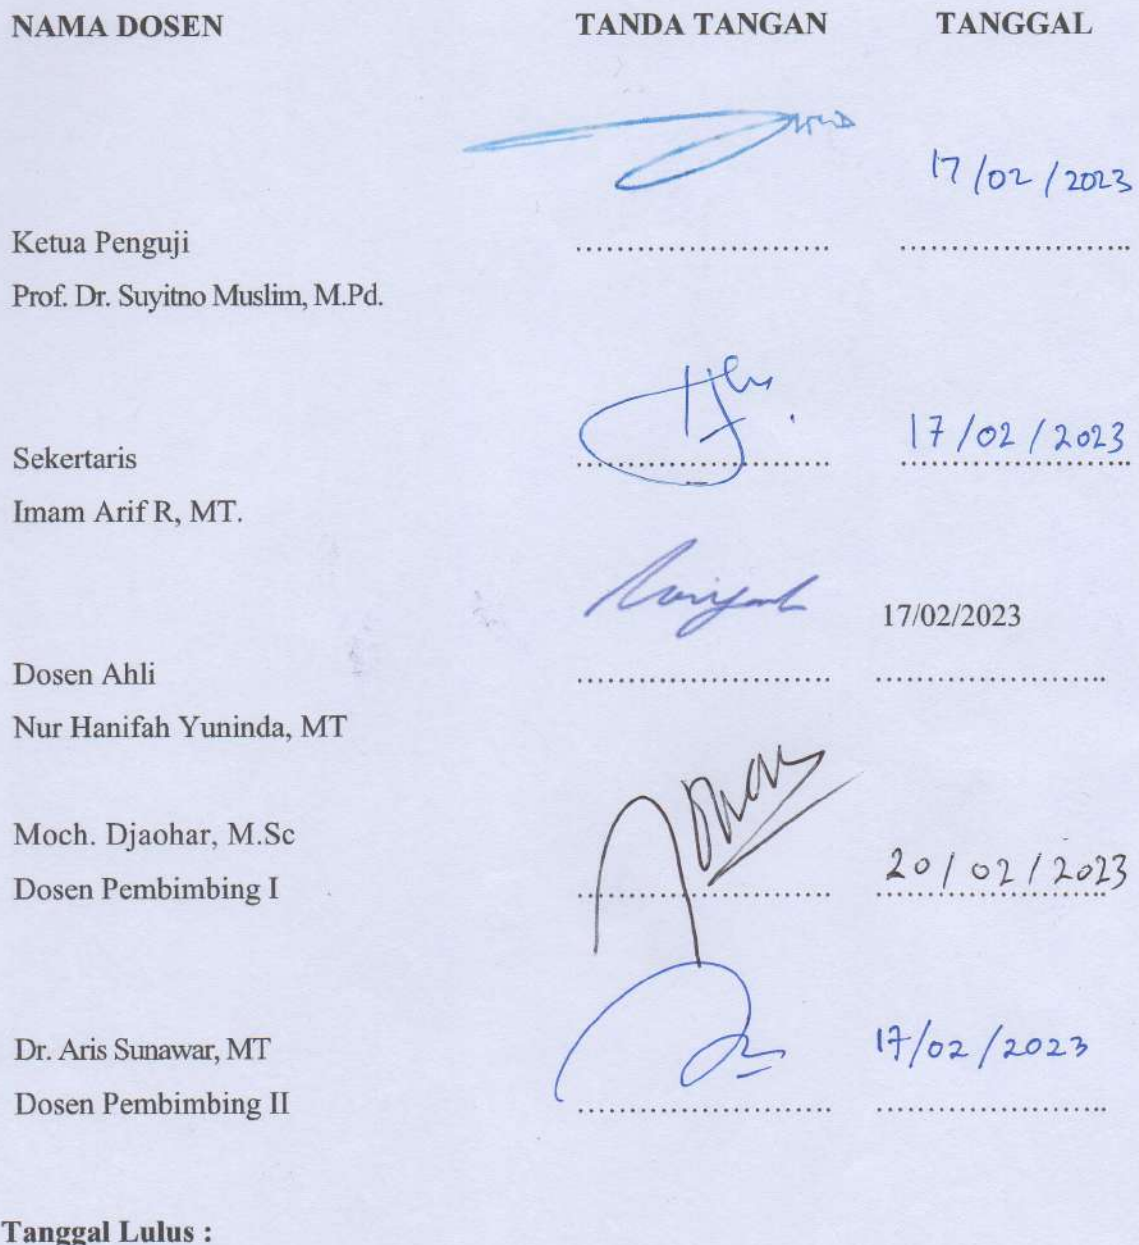 NAMA DOSEN TANDA TANGAN TANGGAL
17/02/2023
Ketua Penguji ........................ ......................
Prof. Dr. Suyitno Muslim, M.Pd.
17/02/2023
Sekertaris ........................ ......................
Imam Arif R, MT.
17/02/2023
Dosen Ahli ........................ ......................
Nur Hanifah Yuninda, MT
Moch. Djaohar, M.Sc
20/02/2023
Dosen Pembimbing I ........................ ......................
Dr. Aris Sunawar, MT 17/02/2023
Dosen Pembimbing II ........................ ......................
Tanggal Lulus :